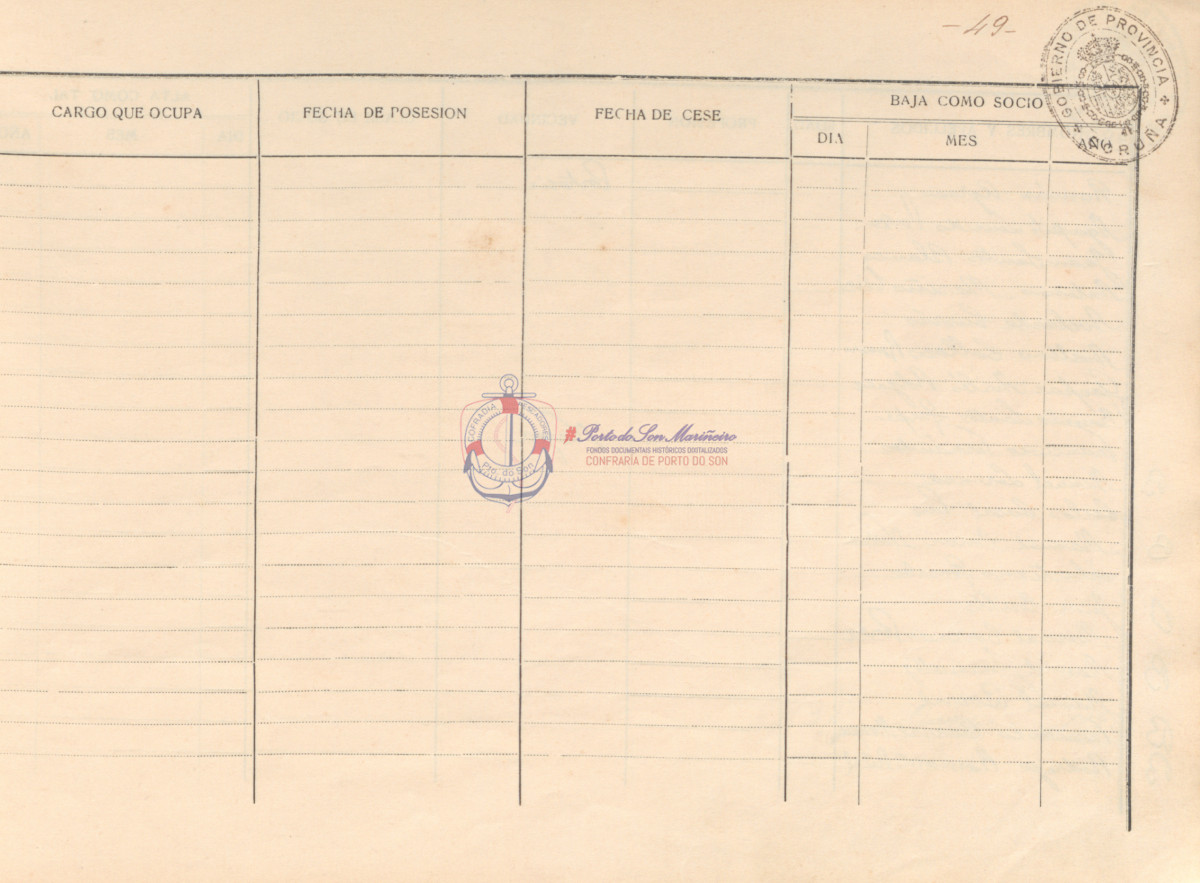 - 49 -
GOBIERNO DE PROVINCIA
CORUÑA
CARGO QUE OCUPA
FECHA DE POSESION
FECHA DE CESE
BAJA COMO SOCIO
DIA
MES
COFRADIA PESCADORES
Pto. do Son
# Porto do Son Mariñeiro
FONDOS DOCUMENTAIS HISTÓRICOS DIXITALIZADOS
CONFRARÍA DE PORTO DO SON